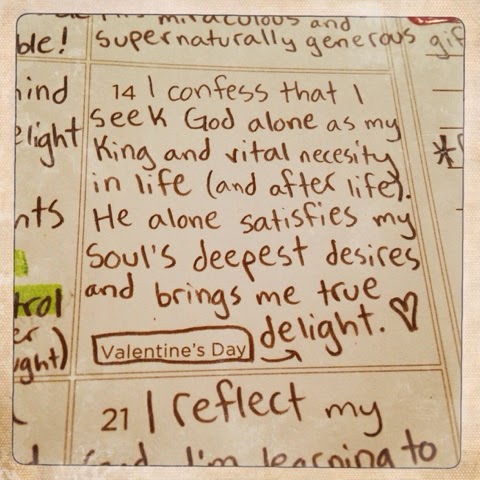 ble! miraculous and
supernaturally generous
gif
hind
elight
nts
trol
er
ught)
14 I confess that I
seek God alone as my
King and vital necesity
in life (and after life).
He alone satisfies my
soul's deepest desires
and brings me true
delight. ♡
Valentine's Day
21 I reflect my
I'm learning to